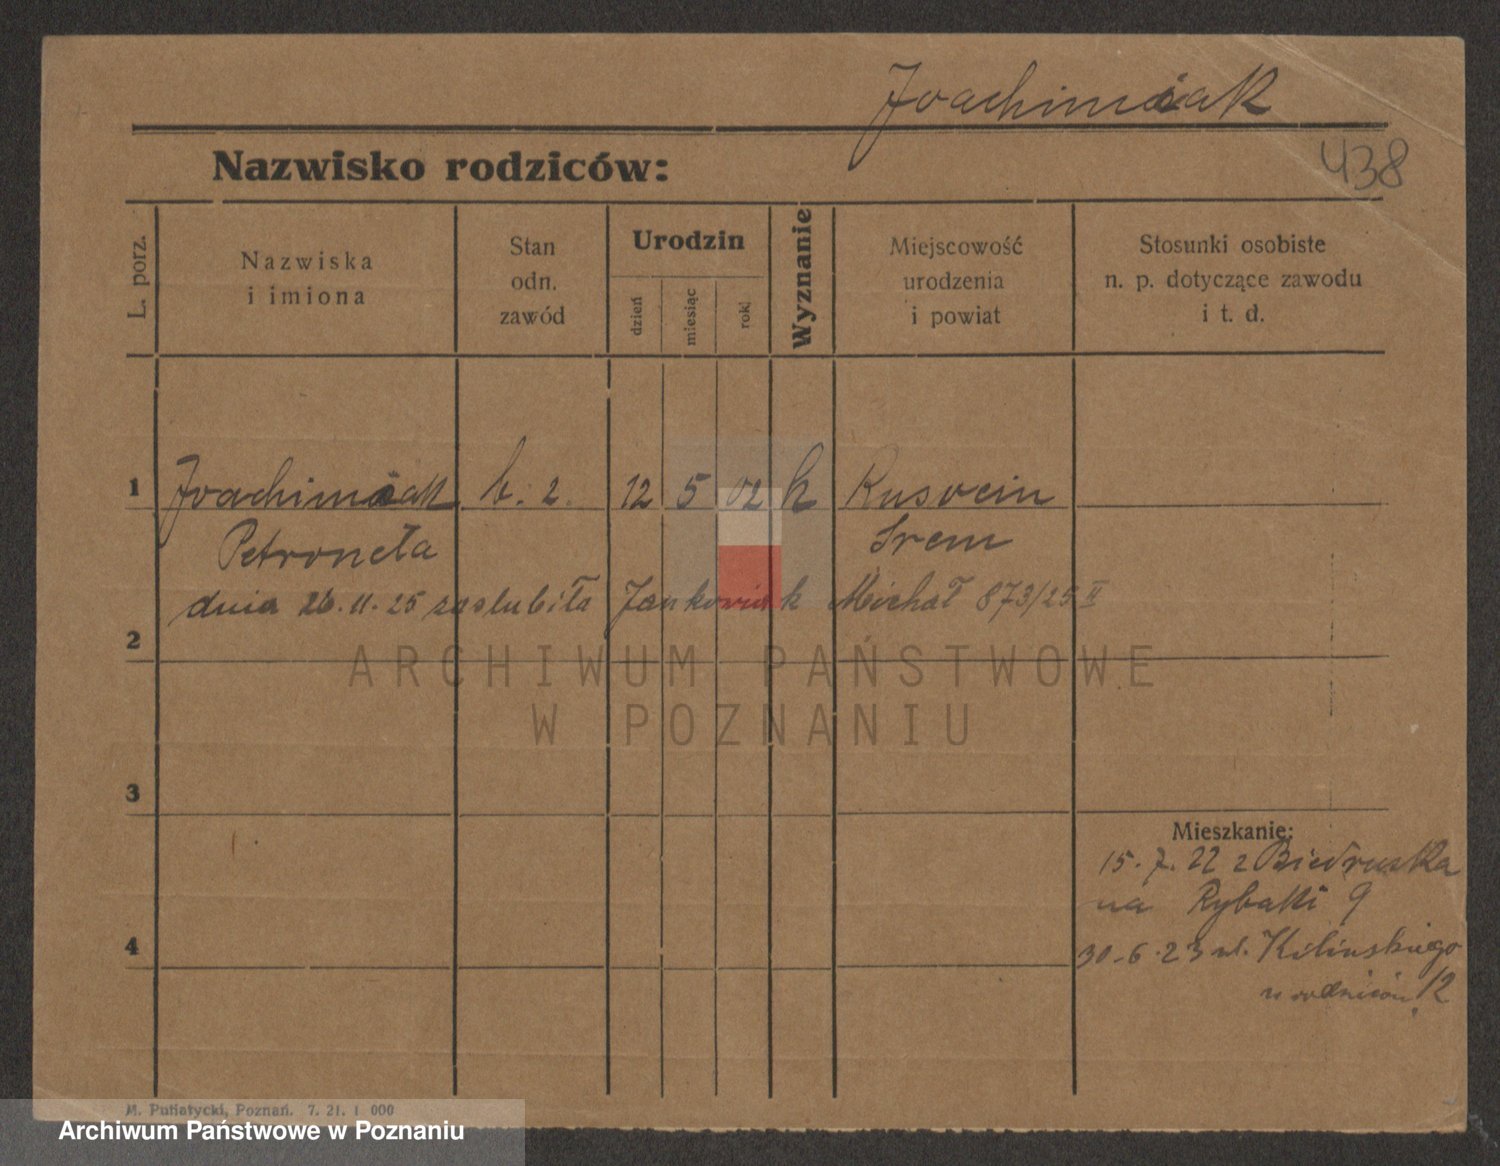 Joachimiak
438
Nazwisko rodziców:
L. porz.
Nazwiska
i imiona
Stan
odn.
zawód
Urodzin
dzień
miesiąc
rok
Wyznanie
Miejscowość
urodzenia
i powiat
Stosunki osobiste
n. p. dotyczące zawodu
i t. d.
1 Joachimiak b. z. 12 5 02 k Rusocin
Petronela Srem
dnia 26.11.25 zaslubiła Jankowiak Michał 873/25 II
2
ARCHIWUM PAŃSTWOWE
W POZNANIU
3
Mieszkanie:
15. 7. 22 z Biedruska
na Rybaki 9
4
30-6.23 ul. Kilinskiego
u rodziców 12
M. Putiatycki, Poznań. 7. 21. 1 000
Archiwum Państwowe w Poznaniu